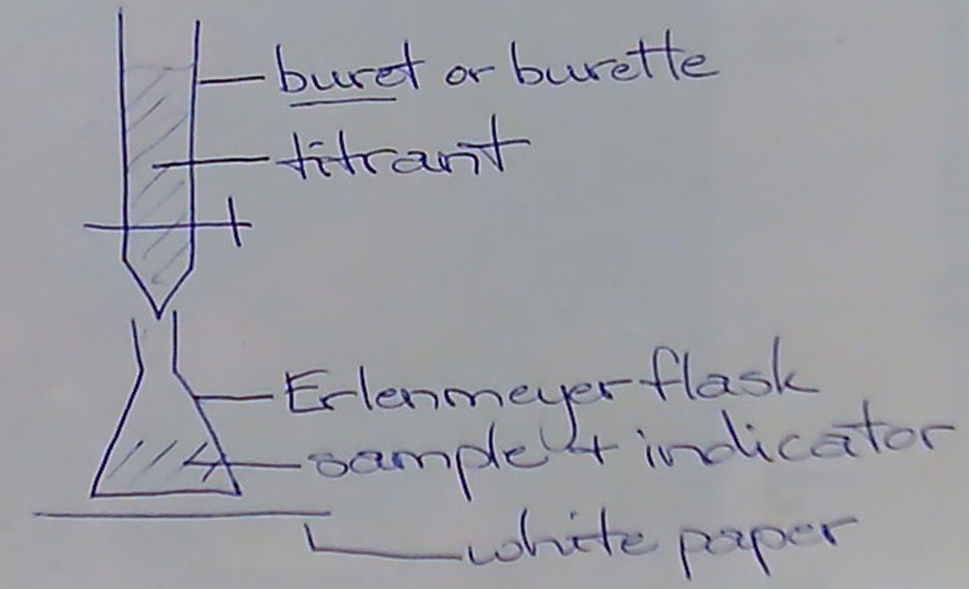 buret or burette
titrant
Erlenmeyer flask
sample + indicator
white paper